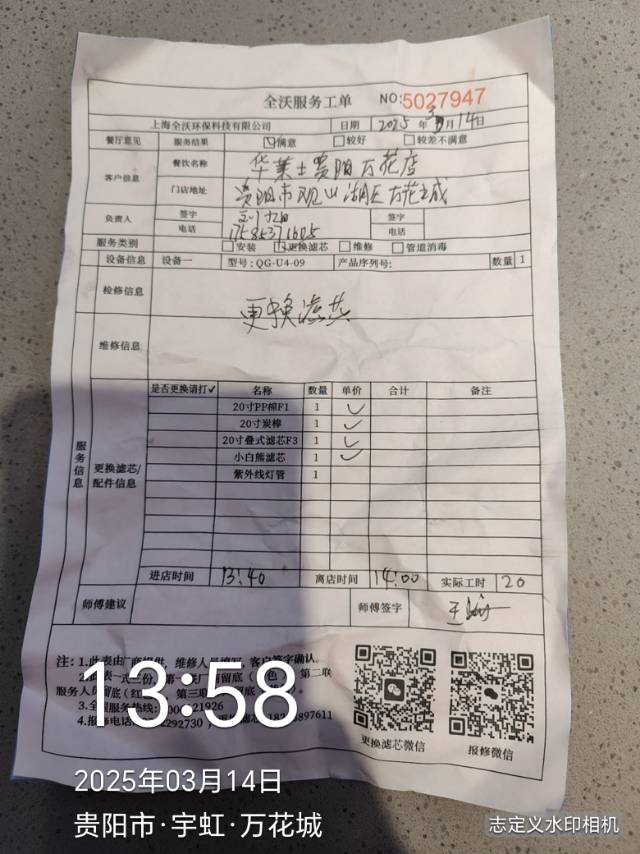 全沃服务工单 NO:5027947
上海全沃环保科技有限公司 日期 2025年3月14日
餐厅意见 服务结果 ☑满意 □较好 □较差不满意
客户信息 餐饮名称 华莱士贵阳万花店
门店地址 贵阳市观山湖区万花城
负责人 签字 签字
电话 电话
服务类别 □安装 ☑更换滤芯 □维修 □管道消毒
设备信息 设备一 型号:QG-U4-09 产品序列号: 数量 1
检修信息
更换滤芯
维修信息
服务信息
更换滤芯/配件信息
是否更换请打✓ 名称 数量 单价 合计 备注
20寸PP棉F1 1 ✓
20寸炭棒 1 ✓
20寸叠式滤芯F3 1 ✓
小白熊滤芯 1 ✓
紫外线灯管 1
进店时间 13:40 离店时间 14:00 实际工时 20
师傅建议 师傅签字
注:1.此表由厂商提供,维修人员填写,客户签字确认。
第二联
服务人员留底(红 第三联
3.全沃服务热线: 21926
4.报修电话 2292730 897611
更换滤芯微信 报修微信
13:58
2025年03月14日
贵阳市·宇虹·万花城
志定义水印相机